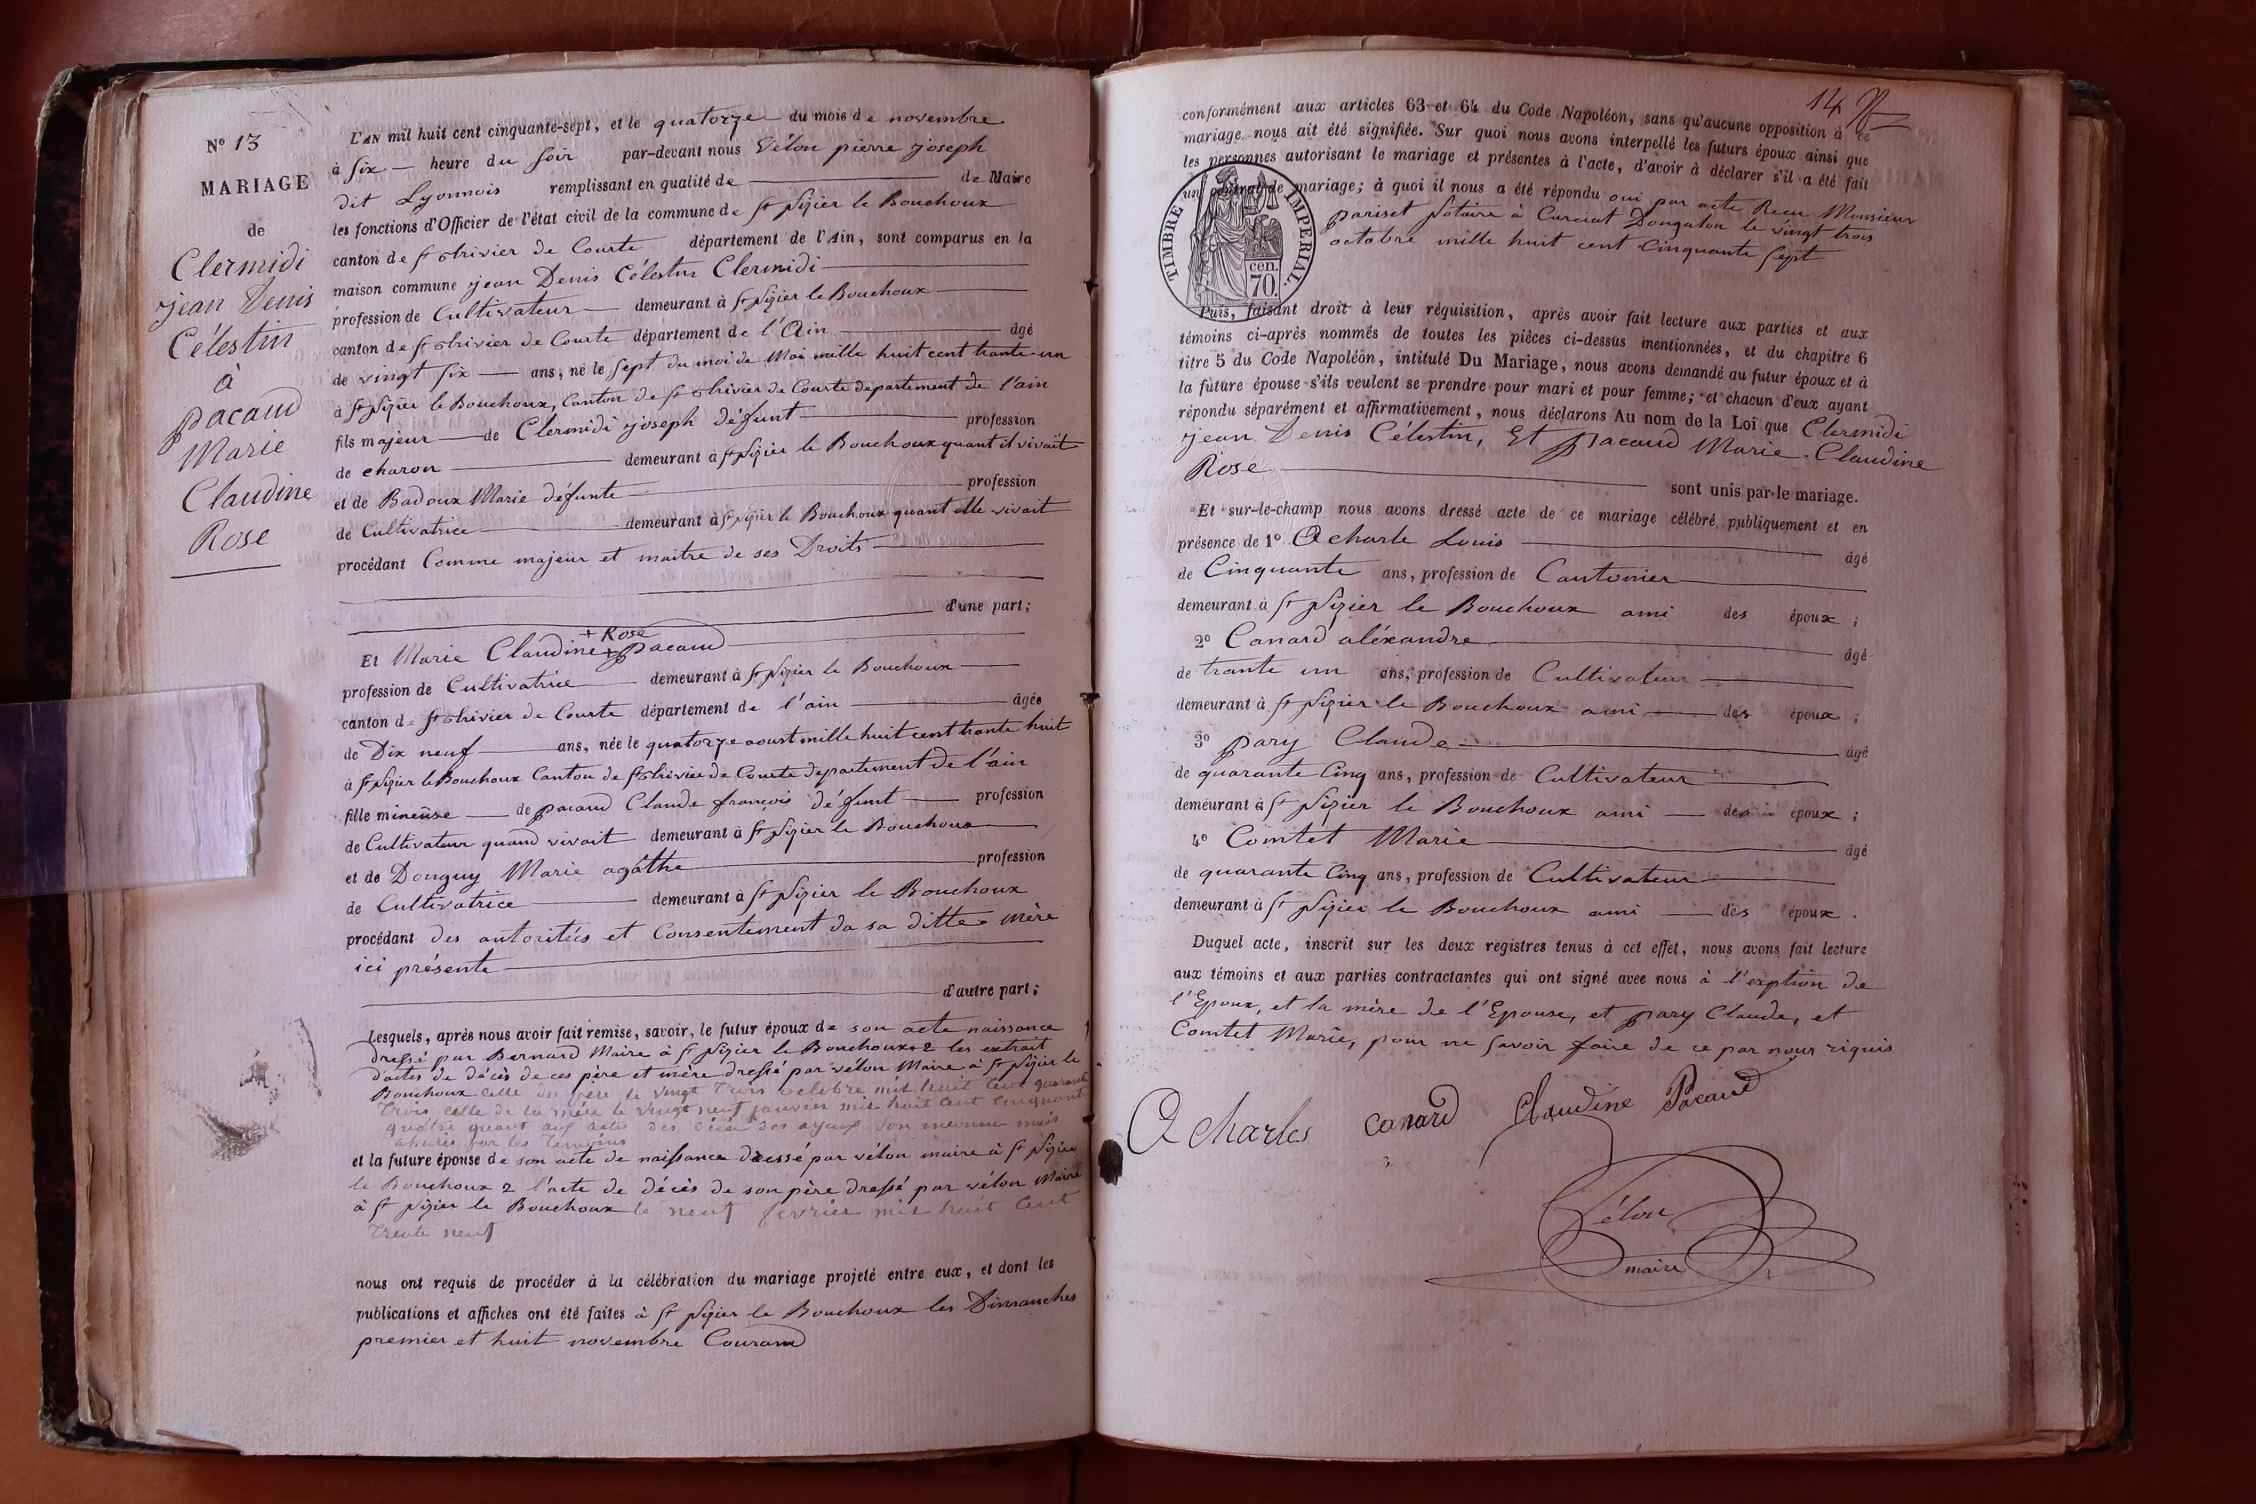 N° 13
MARIAGE
de
Clermidi
jean Denis
Célestin
à
pacaud
Marie
Claudine
Rose
L'AN mil huit cent cinquante-sept, et le quatorze du mois de novembre
à six heure du soir par-devant nous Vélon pierre joseph
dit Lyonnois remplissant en qualité de de Maire
les fonctions d'Officier de l'état civil de la commune de St Nizier le Bouchoux
canton de St trivier de Courte département de l'Ain, sont comparus en la
maison commune jean Denis Célestin Clermidi
profession de Cultivateur demeurant à St Nizier le Bouchoux
canton de St trivier de Courte département de l'Ain âgé
de vingt six ans, né le sept du moi de Mai mille huit cent trante-un
à St Nizier le Bouchoux, Canton de St trivier de Courte departement de l'ain
fils majeur de Clermidi joseph défunt profession
de charon demeurant à St Nizier le Bouchoux quant il vivait
et de Badoux Marie défunte profession
de Cultivatrice demeurant à St Nizier le Bouchoux quant elle vivait
procédant Comme majeur et maitre de ses Droits
d'une part;
+ Rose
Et Marie Claudine + pacaud
profession de Cultivatrice demeurant à St Nizier le Bouchoux
canton de St trivier de Courte département de l'ain âgée
de Dix neuf ans, née le quatorze aoust mille huit cent trante huit
à St Nizier le Bouchoux Canton de St trivier de Courte departement de l'ain
fille mineure de pacaud Claude françois défunt profession
de Cultivateur quand vivait demeurant à St Nizier le Bouchoux
et de Donguy Marie agathe profession
de Cultivatrice demeurant à St Nizier le Bouchoux
procédant des autoritées et Consentement da sa ditte mère
ici présente
d'autre part;
Lesquels, après nous avoir fait remise, savoir, le futur époux de son acte naissance
dressé par Bernard Maire à St Nizier le Bouchoux 2 les extrait
d'actes de décès de ces père et mère dressé par vélon Maire à St Nizier le
Bouchoux celle du père le vingt trois octobre mil huit cent quarante
trois celle de la mère le vingt neuf janvier mil huit cent cinquante
quatre quant aux actes des décès des ayeux
par les témoins
et la future épouse de son acte de naissance dressé par vélon maire à St Nizier
le Bouchoux 2 l'acte de décès de son père dressé par vélon Maire
à St Nizier le Bouchoux le neuf février mil huit cent
trente neuf
nous ont requis de procéder à la célébration du mariage projeté entre eux, et dont les
publications et affiches ont été faites à St Nizier le Bouchoux les Dimanches
premier et huit novembre Courand
14
conformément aux articles 63 et 64 du Code Napoléon, sans qu'aucune opposition à ce
mariage nous ait été signifiée. Sur quoi nous avons interpellé les futurs époux ainsi que
les personnes autorisant le mariage et présentes à l'acte, d'avoir à déclarer s'il a été fait
un contrat de mariage; à quoi il nous a été répondu oui par acte Recu Monsieur
pariset Notaire à Curciat Dongalon le vingt trois
octobre mille huit cent cinquante sept
TIMBRE IMPERIAL.
cen.
70.
Puis, faisant droit à leur réquisition, après avoir fait lecture aux parties et aux
témoins ci-après nommés de toutes les pièces ci-dessus mentionnées, et du chapitre 6
titre 5 du Code Napoléon, intitulé Du Mariage, nous avons demandé au futur époux et à
la future épouse s'ils veulent se prendre pour mari et pour femme; et chacun d'eux ayant
répondu séparément et affirmativement, nous déclarons Au nom de la Loi que Clermidi
jean Denis Célestin, Et pacaud Marie Claudine
Rose sont unis par le mariage.
Et sur-le-champ nous avons dressé acte de ce mariage célébré publiquement et en
présence de 1° Acharle Louis âgé
de Cinquante ans, profession de Cantonier
demeurant à St Nizier le Bouchoux ami des époux;
2° Canard aléxandre âgé
de trante un ans, profession de Cultivateur
demeurant à St Nizier le Bouchoux ami des époux;
3° pary Claude âgé
de quarante Cinq ans, profession de Cultivateur
demeurant à St Nizier le Bouchoux ami des époux;
4° Comtet Marie âgé
de quarante Cinq ans, profession de Cultivateur
demeurant à St Nizier le Bouchoux ami des époux.
Duquel acte, inscrit sur les deux registres tenus à cet effet, nous avons fait lecture
aux témoins et aux parties contractantes qui ont signé avec nous à l'exption de
l'Epoux, et la mère de l'Epouse, et pary Claude, et
Comtet Marie, pour ne savoir faire de ce par nous riquis
Acharles canard Claudine Pacaud
Vélon
maire